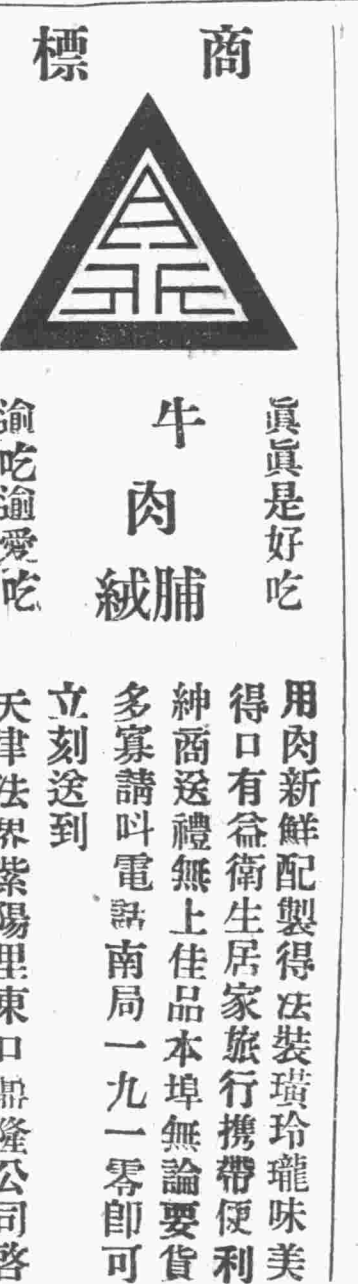 商標
眞眞是好吃
牛肉
脯絨
逾吃逾愛吃
用肉新鮮配製得法裝璜玲瓏味美
得口有益衛生居家旅行携帶便利
紳商送禮無上佳品本埠無論要貨
多寡請呌電話南局一九一零卽可
立刻送到
天津法界紫陽里東口鼎隆公司啓